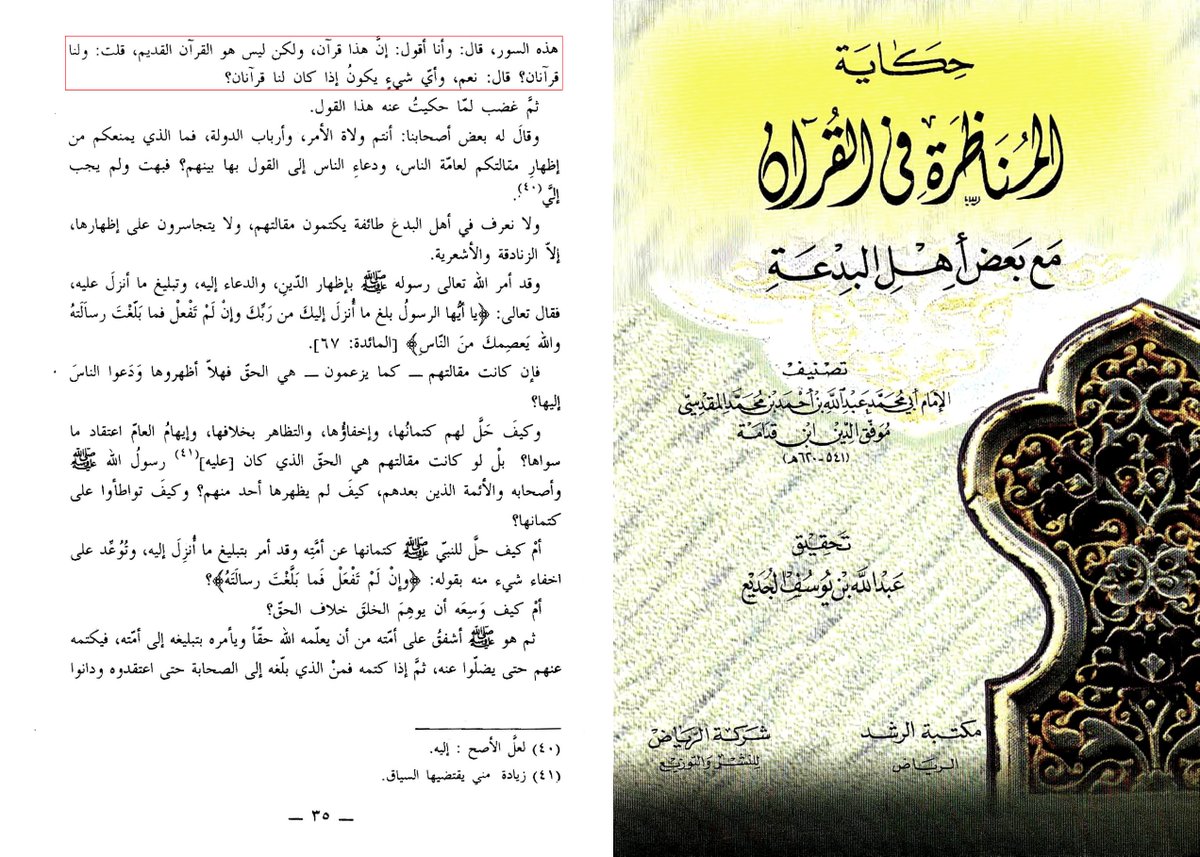 حكاية
المناظرة في القرآن
مع بعض أهل البدعة
تصنيف
الإمام أبي محمد عبد الله بن أحمد بن محمد المقدسي
موفق الدين ابن قدامة
(٥٤١-٦٢٠هـ)
تحقيق
عبد الله بن يوسف الجديع
مكتبة الرشد
الرياض
شركة الرياض
للنشر والتوزيع
هذه السور، قال: وأنا أقول: إنَّ هذا قرآن، ولكن ليس هو القرآن القديم، قلت: ولنا
قرآنان؟ قال: نعم، وأيّ شيءٍ يكونُ إذا كان لنا قرآنان؟
ثمَّ غضب لمّا حكيتُ عنه هذا القول.
وقالَ له بعض أصحابنا: أنتم ولاة الأمر، وأرباب الدولة، فما الذي يمنعكم من
إظهارِ مقالتكم لعامّة الناس، ودعاءِ الناس إلى القول بها بينهم؟ فبهت ولم يجب
إليَّ(٤٠).
ولا نعرف في أهل البدع طائفة يكتمون مقالتهم، ولا يتجاسرون على إظهارها،
إلاّ الزنادقة والأشعرية.
وقد أمر الله تعالى رسوله ﷺ بإظهار الدّينِ، والدعاء إليه، وتبليغ ما أنزلَ عليه،
فقال تعالى: ﴿يا أيُّها الرسولُ بلغ ما أُنزلَ إليكَ من رَبِّكَ وإنْ لَمْ تَفْعلْ فما بَلَّغْتَ رسالَتَهُ
والله يَعصِمكَ منَ النّاسِ﴾ [المائدة: ٦٧].
فإن كانت مقالتهم — كما يزعمون — هي الحقّ فهلاّ أظهروها وَدَعوا الناسَ
إليها؟
وكيفَ حَلَّ لهم كتمانُها، وإخفاؤُها، والتظاهر بخلافها، وإيهامُ العامّ اعتقاد ما
سواها؟ بلْ لو كانت مقالتهم هي الحقّ الذي كان [عليه](٤١) رسولُ الله ﷺ
وأصحابه والأئمة الذين بعدهم، كيفَ لم يظهرها أحد منهم؟ وكيفَ تواطأوا على
كتمانها؟
أمْ كيف حلَّ للنبيّ ﷺ كتمانها عن أمَّتِه وقد أمر بتبليغ ما أُنزِلَ إليه، وتُوُعِّد على
اخفاء شيء منه بقوله: ﴿وإنْ لَمْ تَفْعَلْ فَما بَلَّغْتَ رسالَتَهُ﴾؟
أمْ كيف وَسِعَه أن يوهِمَ الخلقَ خلاف الحقّ؟
ثم هو ﷺ أشفقُ على أمّته من أن يعلّمه الله حقّاً ويأمره بتبليغه إلى أمّته، فيكتمه
عنهم حتى يضلّوا عنه، ثمَّ إذا كتمه فمنْ الذي بلّغه إلى الصحابة حتى اعتقدوه ودانوا
(٤٠) لعلَّ الأصح : إليه.
(٤١) زيادة مني يقتضيها السياق.
— ٣٥ —